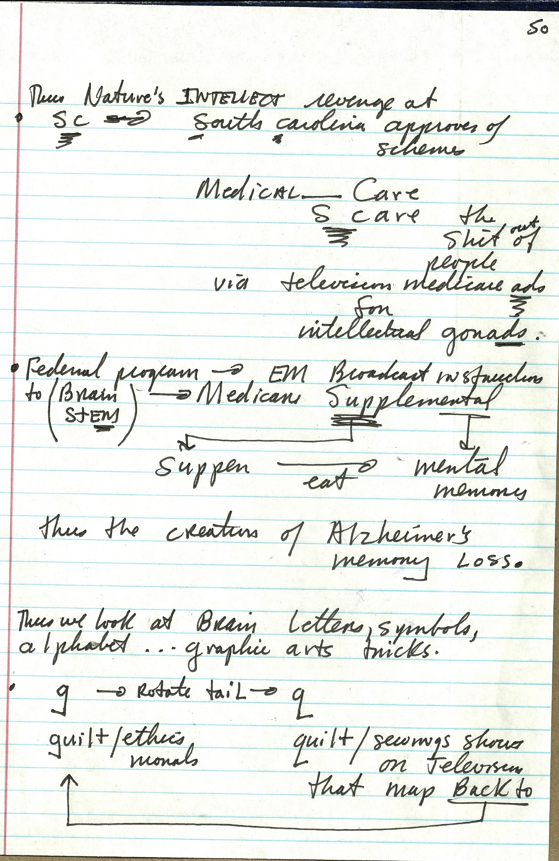 50
Thus Nature's INTELLECT revenge at
• SC → South carolina approves of
schemes
Medical — Care
S care the
shit out of
people
via television medicare ads
for
intellectual gonads.
• Federal program → EM Broadcast instructions
to (Brain STEM) → Medicare Supplemental
Supper → eat mental
memories
thus the creation of Alzheimer's
memory Loss.
Thus we look at Brain Letters, symbols,
alphabet ... graphic arts tricks.
• g → Rotate tail → q
guilt/ethics quilt/sewings shows
morals on Television
that map Back to